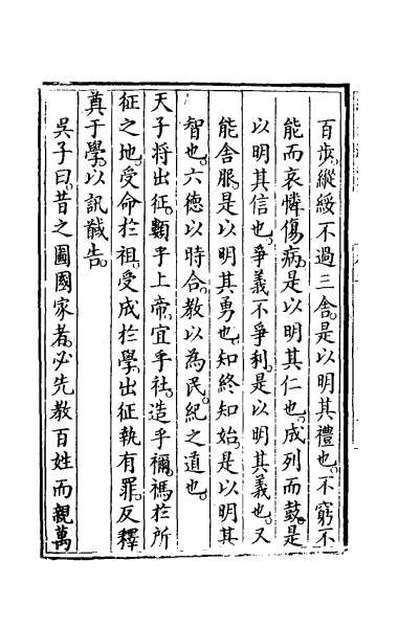 百步。縱綏不過三舍。是以明其禮也。不窮不
能而哀憐傷病。是以明其仁也。成列而鼓。是
以明其信也。爭義不爭利。是以明其義也。又
能舍服。是以明其勇也。知終知始。是以明其
智也。六德以時合。教以為民紀之道也。
天子將出征。類乎上帝。宜乎社。造乎禰。禡於所
征之地。受命於祖。受成於學。出征執有罪。反釋
奠于學。以訊馘告。
吳子曰。昔之圖國家者。必先教百姓而親萬